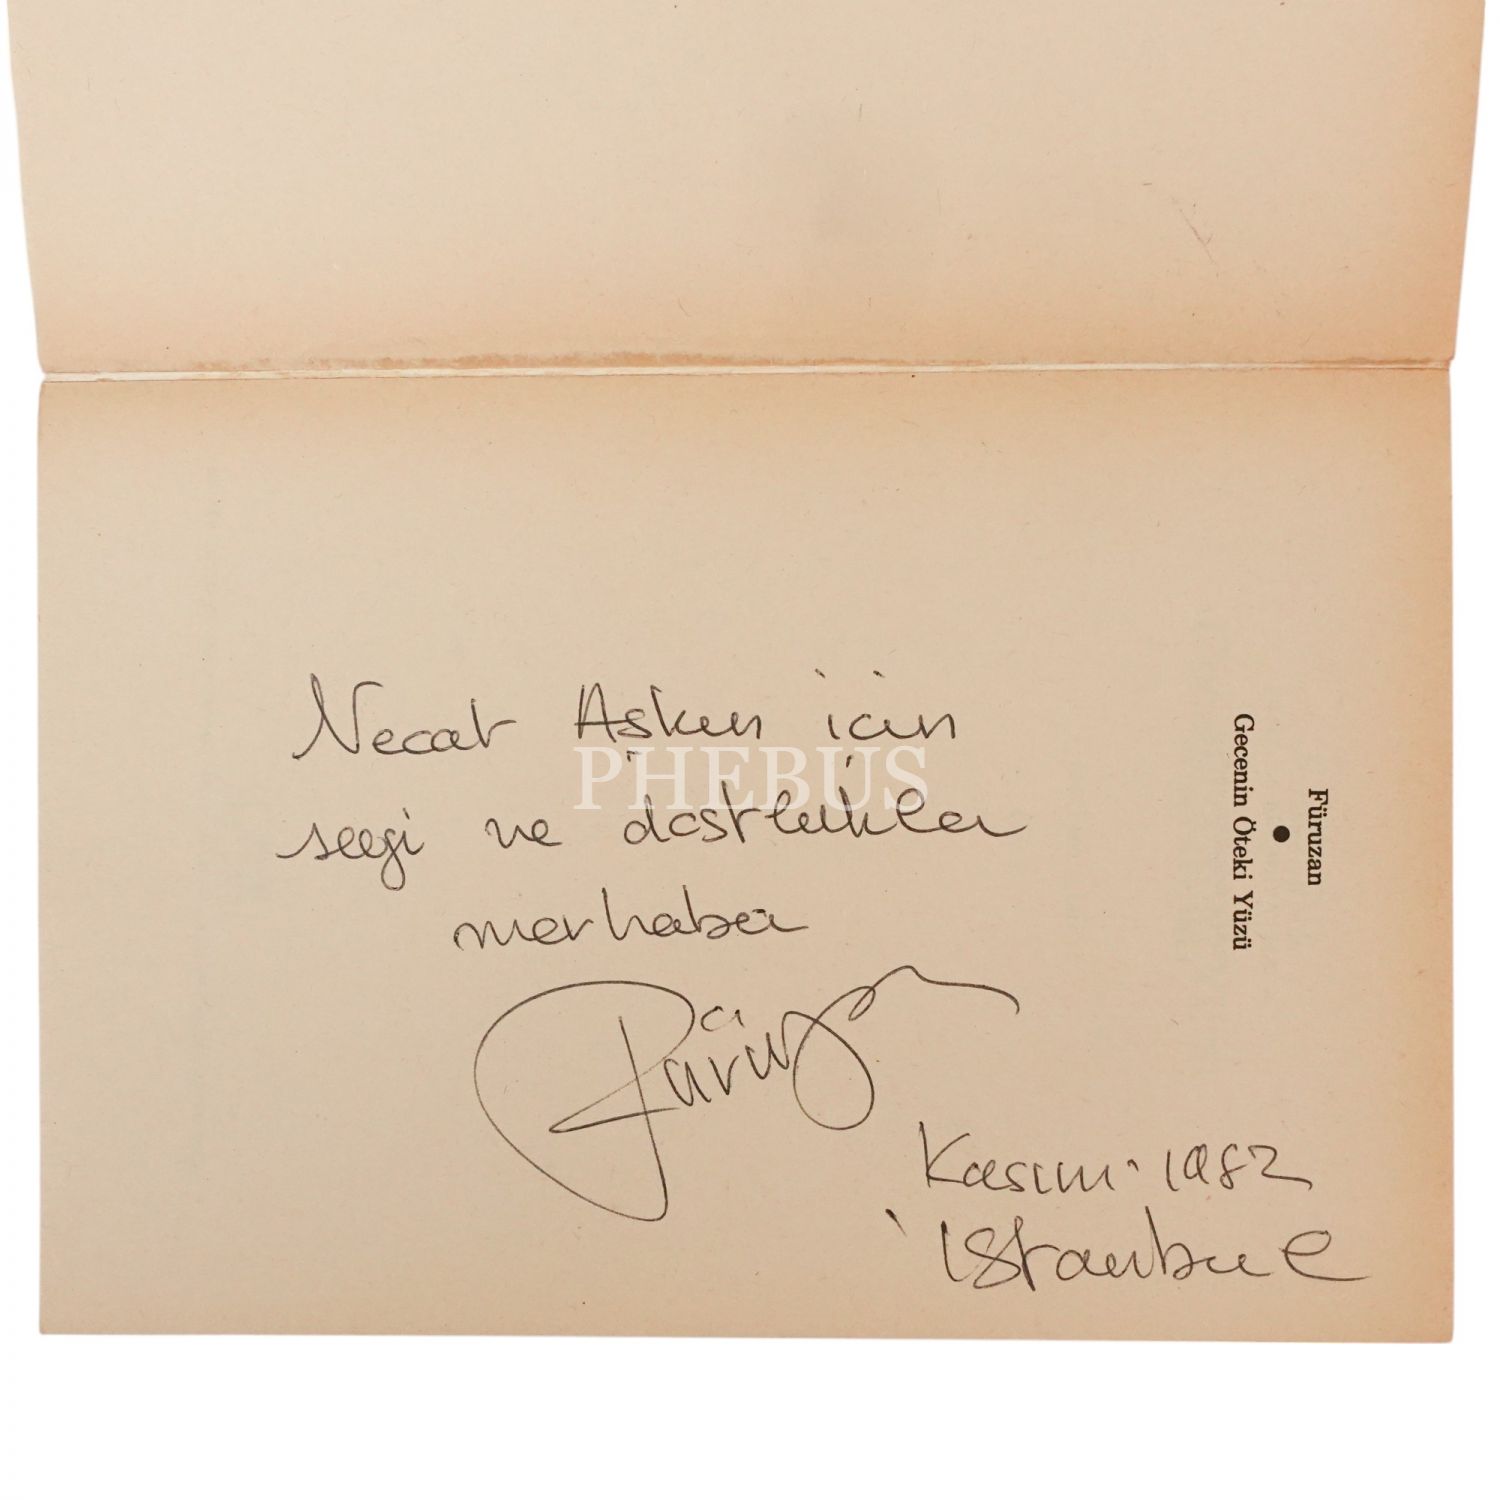 Necat Aşkın için
sevgi ve dostlukla
merhaba
Füruzan
Kasım - 1982
İstanbul
Füruzan
Gecenin Öteki Yüzü
PHEBUS